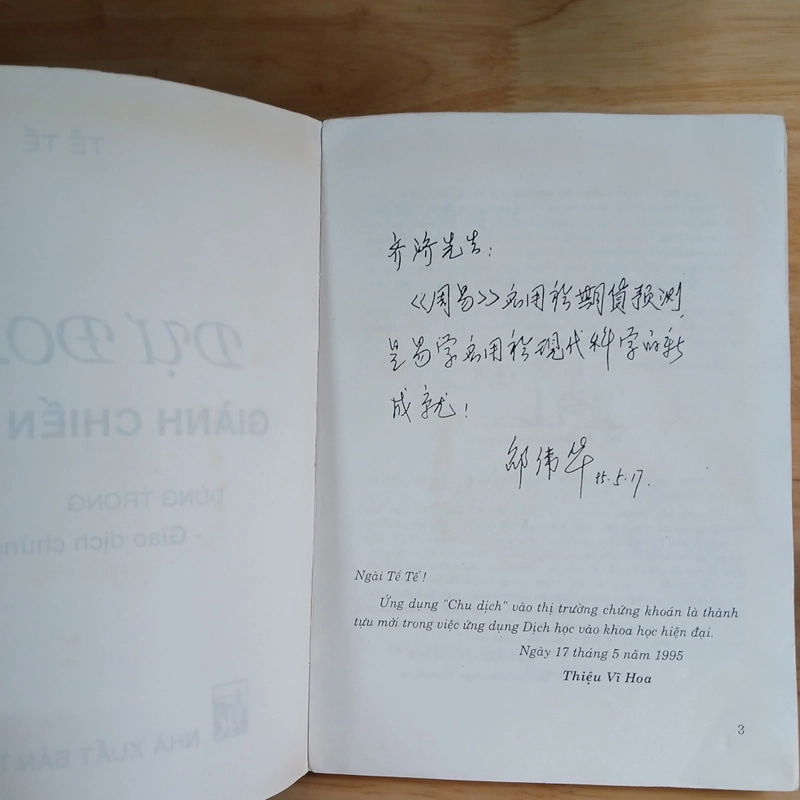 TỀ TẾ
DỰ ĐO
GIÀNH CHIẾN
DÙNG TRONG
- Giao dịch chứng
NHÀ XUẤT BẢN T
齐济先生：
《周易》应用於期貨预测，
是易学应用於现代科学的新
成就！
邵伟华 95.5.17.
Ngài Tề Tế !
Ứng dụng "Chu dịch" vào thị trường chứng khoán là thành
tựu mới trong việc ứng dụng Dịch học vào khoa học hiện đại.
Ngày 17 tháng 5 năm 1995
Thiệu Vĩ Hoa
3